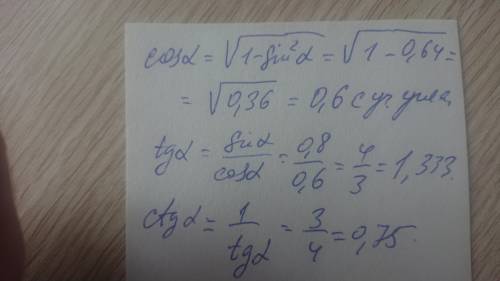 cosα = √(1-sin²α) = √(1-0,64) =
= √0,36 = 0,6 с уч. угла,
tgα = sinα/cosα = 0,8/0,6 = 4/3 = 1,333.
ctgα = 1/tgα = 3/4 = 0,75.